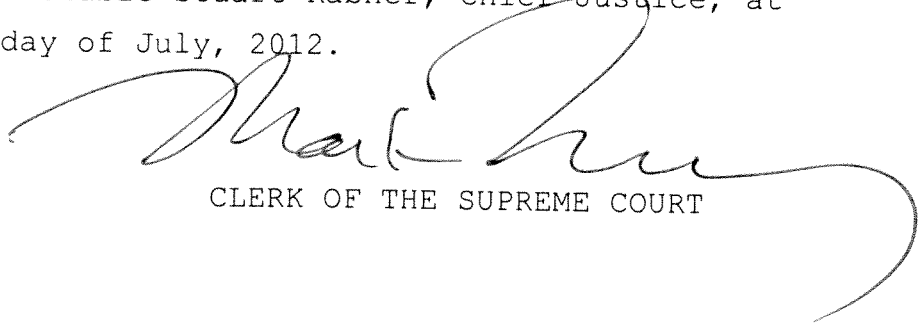 Stuart Rabner, Chief Justice, at
day of July, 2012.
Mark
CLERK OF THE SUPREME COURT